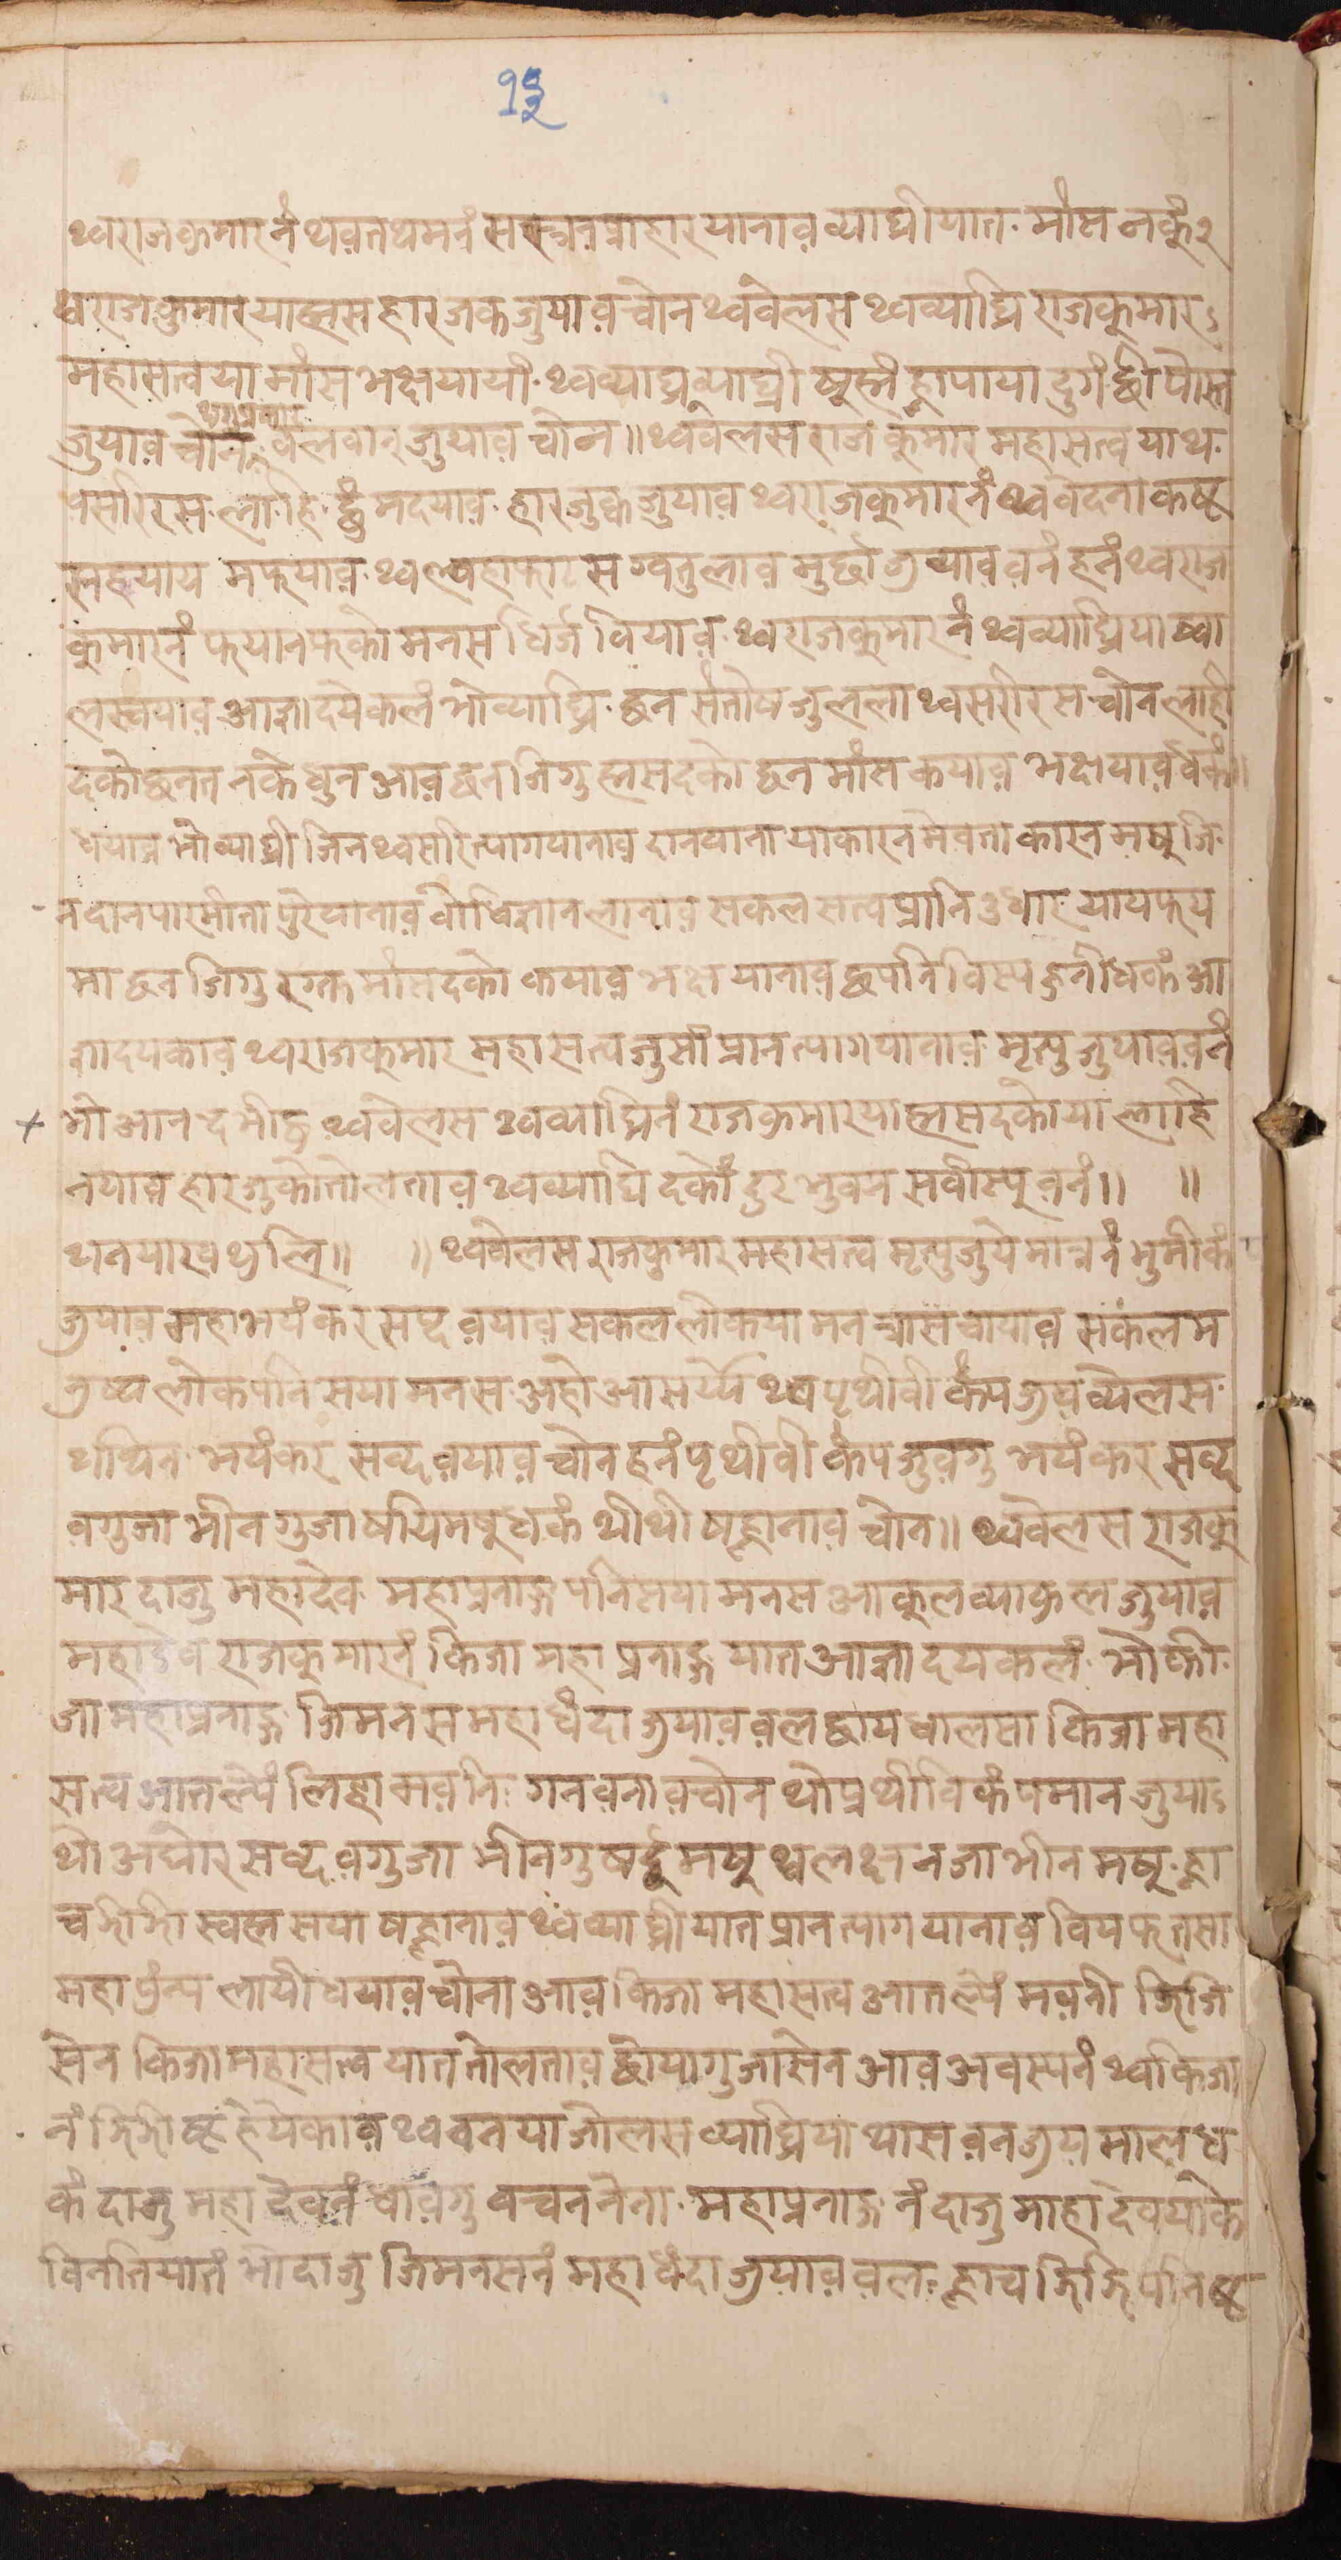 १३
थ्वराजकुमारनं थवतथमनं सस्त्रनप्राहारयानाव व्याघ्रीयात मांस नकुं २
थ्वराजकुमारयाह्मसहारजकजुयाव चोन थ्ववेलस थ्वव्याघ्रि राजकुमार
महासत्वया मांस भक्षयायां थ्वव्याघ्रव्याघ्री ह्मंह्मापाया दुगं
जुयाव चोन वलवान् जुयाव चोन ॥ थ्ववेलस राजकुमार महासत्व याथ
वसरिरस लाहि मदयाव हारजुक्वजुयाव थ्वराजकुमारनं थ्ववेदना कष्ट
सहयाय मफयाव ग्वतुलाव मुर्छा जुयाव वनं हनं थ्वराज
कुमारनं फयानफको मनस धिर्ज वियाव थ्वराजकुमारनं थ्वव्याघ्रिया ष्वा
लस्वयाव आज्ञादयेकलं भोव्याघ्रि छन संतोष जुलला थ्वसरीरस चोन लाहि
दको छनत नके धुन आव छन जिगु ह्मसदको छन मांस कयाव भक्षयावधकं॥
धयाव भोव्याघ्री जिन थ्वसरि त्यागयानाव दानयाना याकारन मेवता कारन मषु जि
नदानपारमीता पुरेयानाव वोधिज्ञान लानाव सकल सत्वप्रानि उधार यायफय
मा छन जिगु रक्त मांस दको कयाव भक्षयानाव छपनि विस्य हुनी धकं आ
ज्ञादयकाव थ्वराजकुमार महासत्व जुसों प्रान त्यागयानाव मृत्यु जुयाववनं
भो आनन्दभीक्षु थ्ववेलस थ्वव्याघ्रिनं राजकुमारयाह्मसदकोया लाहि
नयाव हारजुको तोलताव थ्वव्याघ्रि दकों दुर भुवन सवीस्यु वनं॥ ॥
थनयाखथुलि॥ ॥ थ्ववेलस राजकुमार महासत्व मृत्युजुये मात्रनं भुमीकं
जुयाव महाभयंकर सप्द वयाव सकललोकया मन त्रास चायाव सकलम
नुष्य लोकपनिसया मनस अहो आसर्य्य थ्वपृथीवी कंपजुयव्येलस
थथिन भयंकर सव्द वयाव चोन हनं पृथीवी कंप जुवगु भयंकर सव्द
वगुजा भीनगुजा षयिमषु धकं थीथी षह्लानाव चोन॥ थ्ववेलस राजकु
मार दाजु महादेव महाप्रनाड्ग पनिसया मनस आकुलव्याकुल जुयाव
महादेव राजकुमारनं किजा महाप्रनाड्ग यात आज्ञादयकलं भोकी
जा महाप्रनाड्ग जिमनस महाधंदा जुयाववल छाय धालसा किजा महा
सत्व आतल्यें लिहा मवनि गनवनाव चोन थो प्रथीवि कंपमान जुया
थो अघोर सव्द वगुजा भीनगु षई मषु थ्वलक्षनजा भीन मषु ह्ना
च झिझी स्वह्मसया षह्लानाव थ्वव्याघ्रीयात प्रान त्यागयानाव वियफतसा
महापुंन्य लायी धयाव चोना आव किजा महासत्व आतल्यें मवनी झिझि
सेन किजा महासत्वयात तोलताव छोयागुजासेन आव अवस्यनं थ्वकिजा
नं झिझी हेयेकाव थ्ववनया झोलस व्याघ्रिया थास वनजुय माल ध
कं दाजु महादेवनं धावगु वचन नेना महाप्रनाड्ग नं दाजु माहादेवयाके
विनतियातं भो दाजु जिमनसनं महाधंदा जुयाववल ह्नाच झिझि पनि